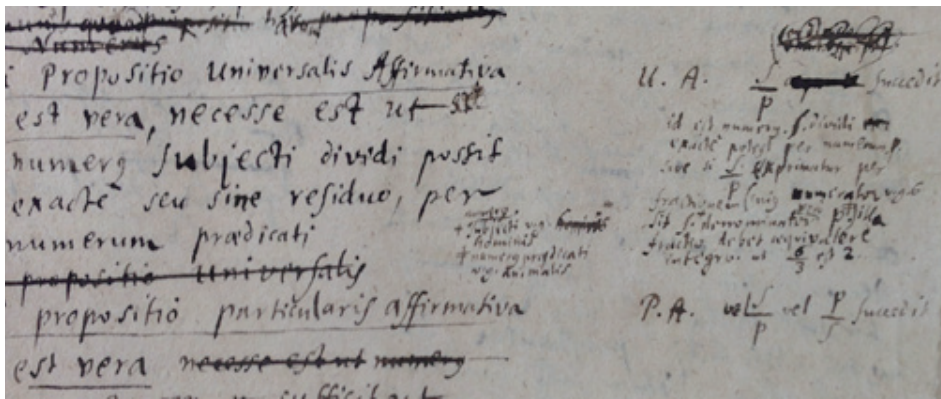 Numeris
Propositio Universalis Affirmativa
est vera, necesse est ut
numerq subjecti dividi possit
exactè seu sine residuo, per
numerum prædicati
propositio Universalis
propositio particularis affirmativa
est vera necesse est ut numerq
sufficit ut
numerq
+ subjecti v.g.
hominis
+ numerq prædicati
v.g. animalis
U. A. S/P succedit
id est numerq S. dividi
exactè potest per numerum P.
sive si S/P exprimatur per
fractionem cujq numerator v.g. 6
sit S. denominator P illa
fractio debet æquivalere
integro ut 6/3 est 2.
P. A. vel S/P vel P/S succedit